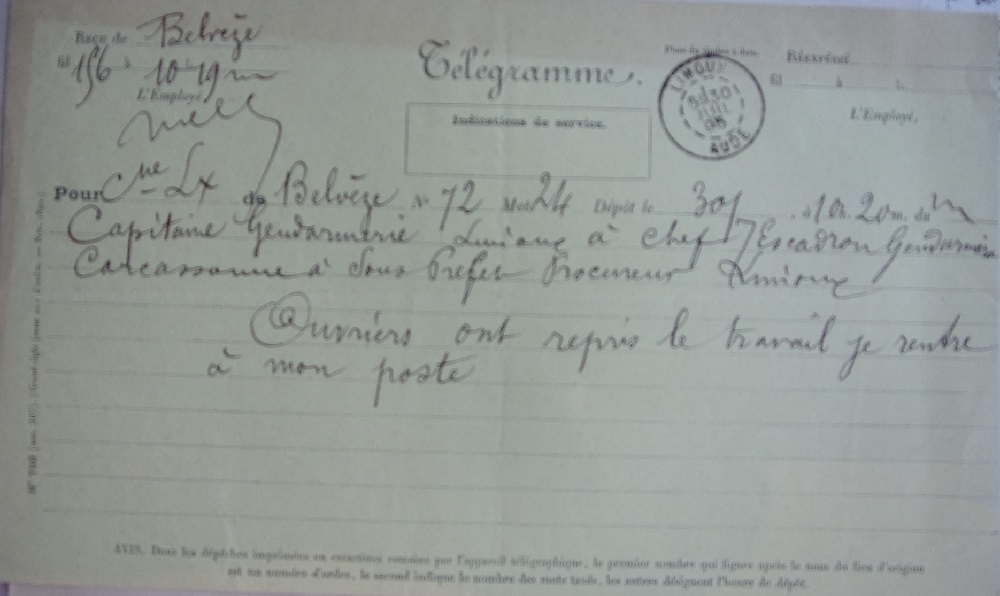 Reçu de Belvèze
fil 156 à 10-19 m
L'Employé,
Télégramme.
Indications de service.
LIMOUX
30
AUDE
Réexpédié
fil à
L'Employé,
Pour Lx de Belvèze N° 72 Mots 24 Dépôt le 30/ à 10h. 20m. du m
Capitaine Gendarmerie Limoux à chef 7 Escadron Gendarmerie
Carcassonne à Sous Préfet Procureur Limoux
Ouvriers ont repris le travail je rentre
à mon poste
AVIS. Dans les dépêches imprimées en caractères romains par l'appareil télégraphique, le premier nombre qui figure après le nom du lieu d'origine
est un numéro d'ordre, le second indique le nombre des mots taxés, les autres désignent l'heure de dépôt.